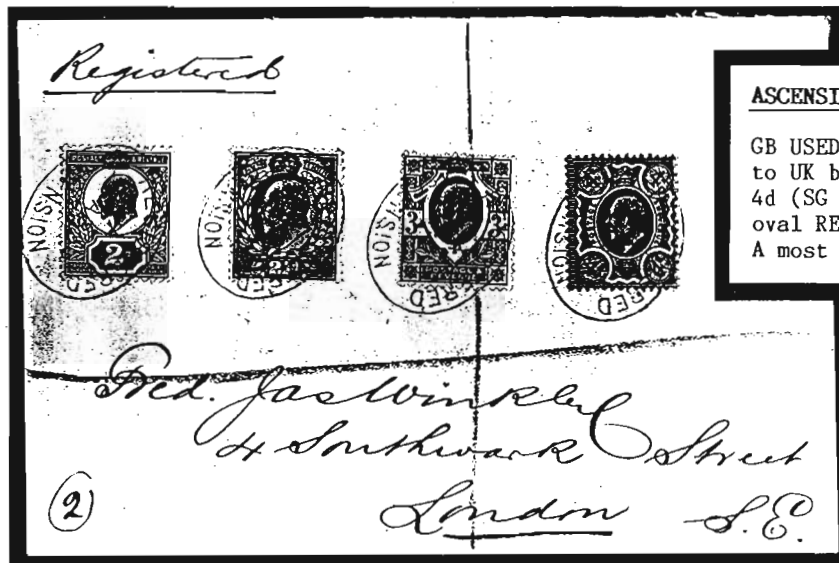 Registered
ASCENSI
GB USED
to UK b
4d (SG
oval RE
A most
2
3
3
Fred. Jas Winkley
4 Southwark Street
London S.E.
(2)